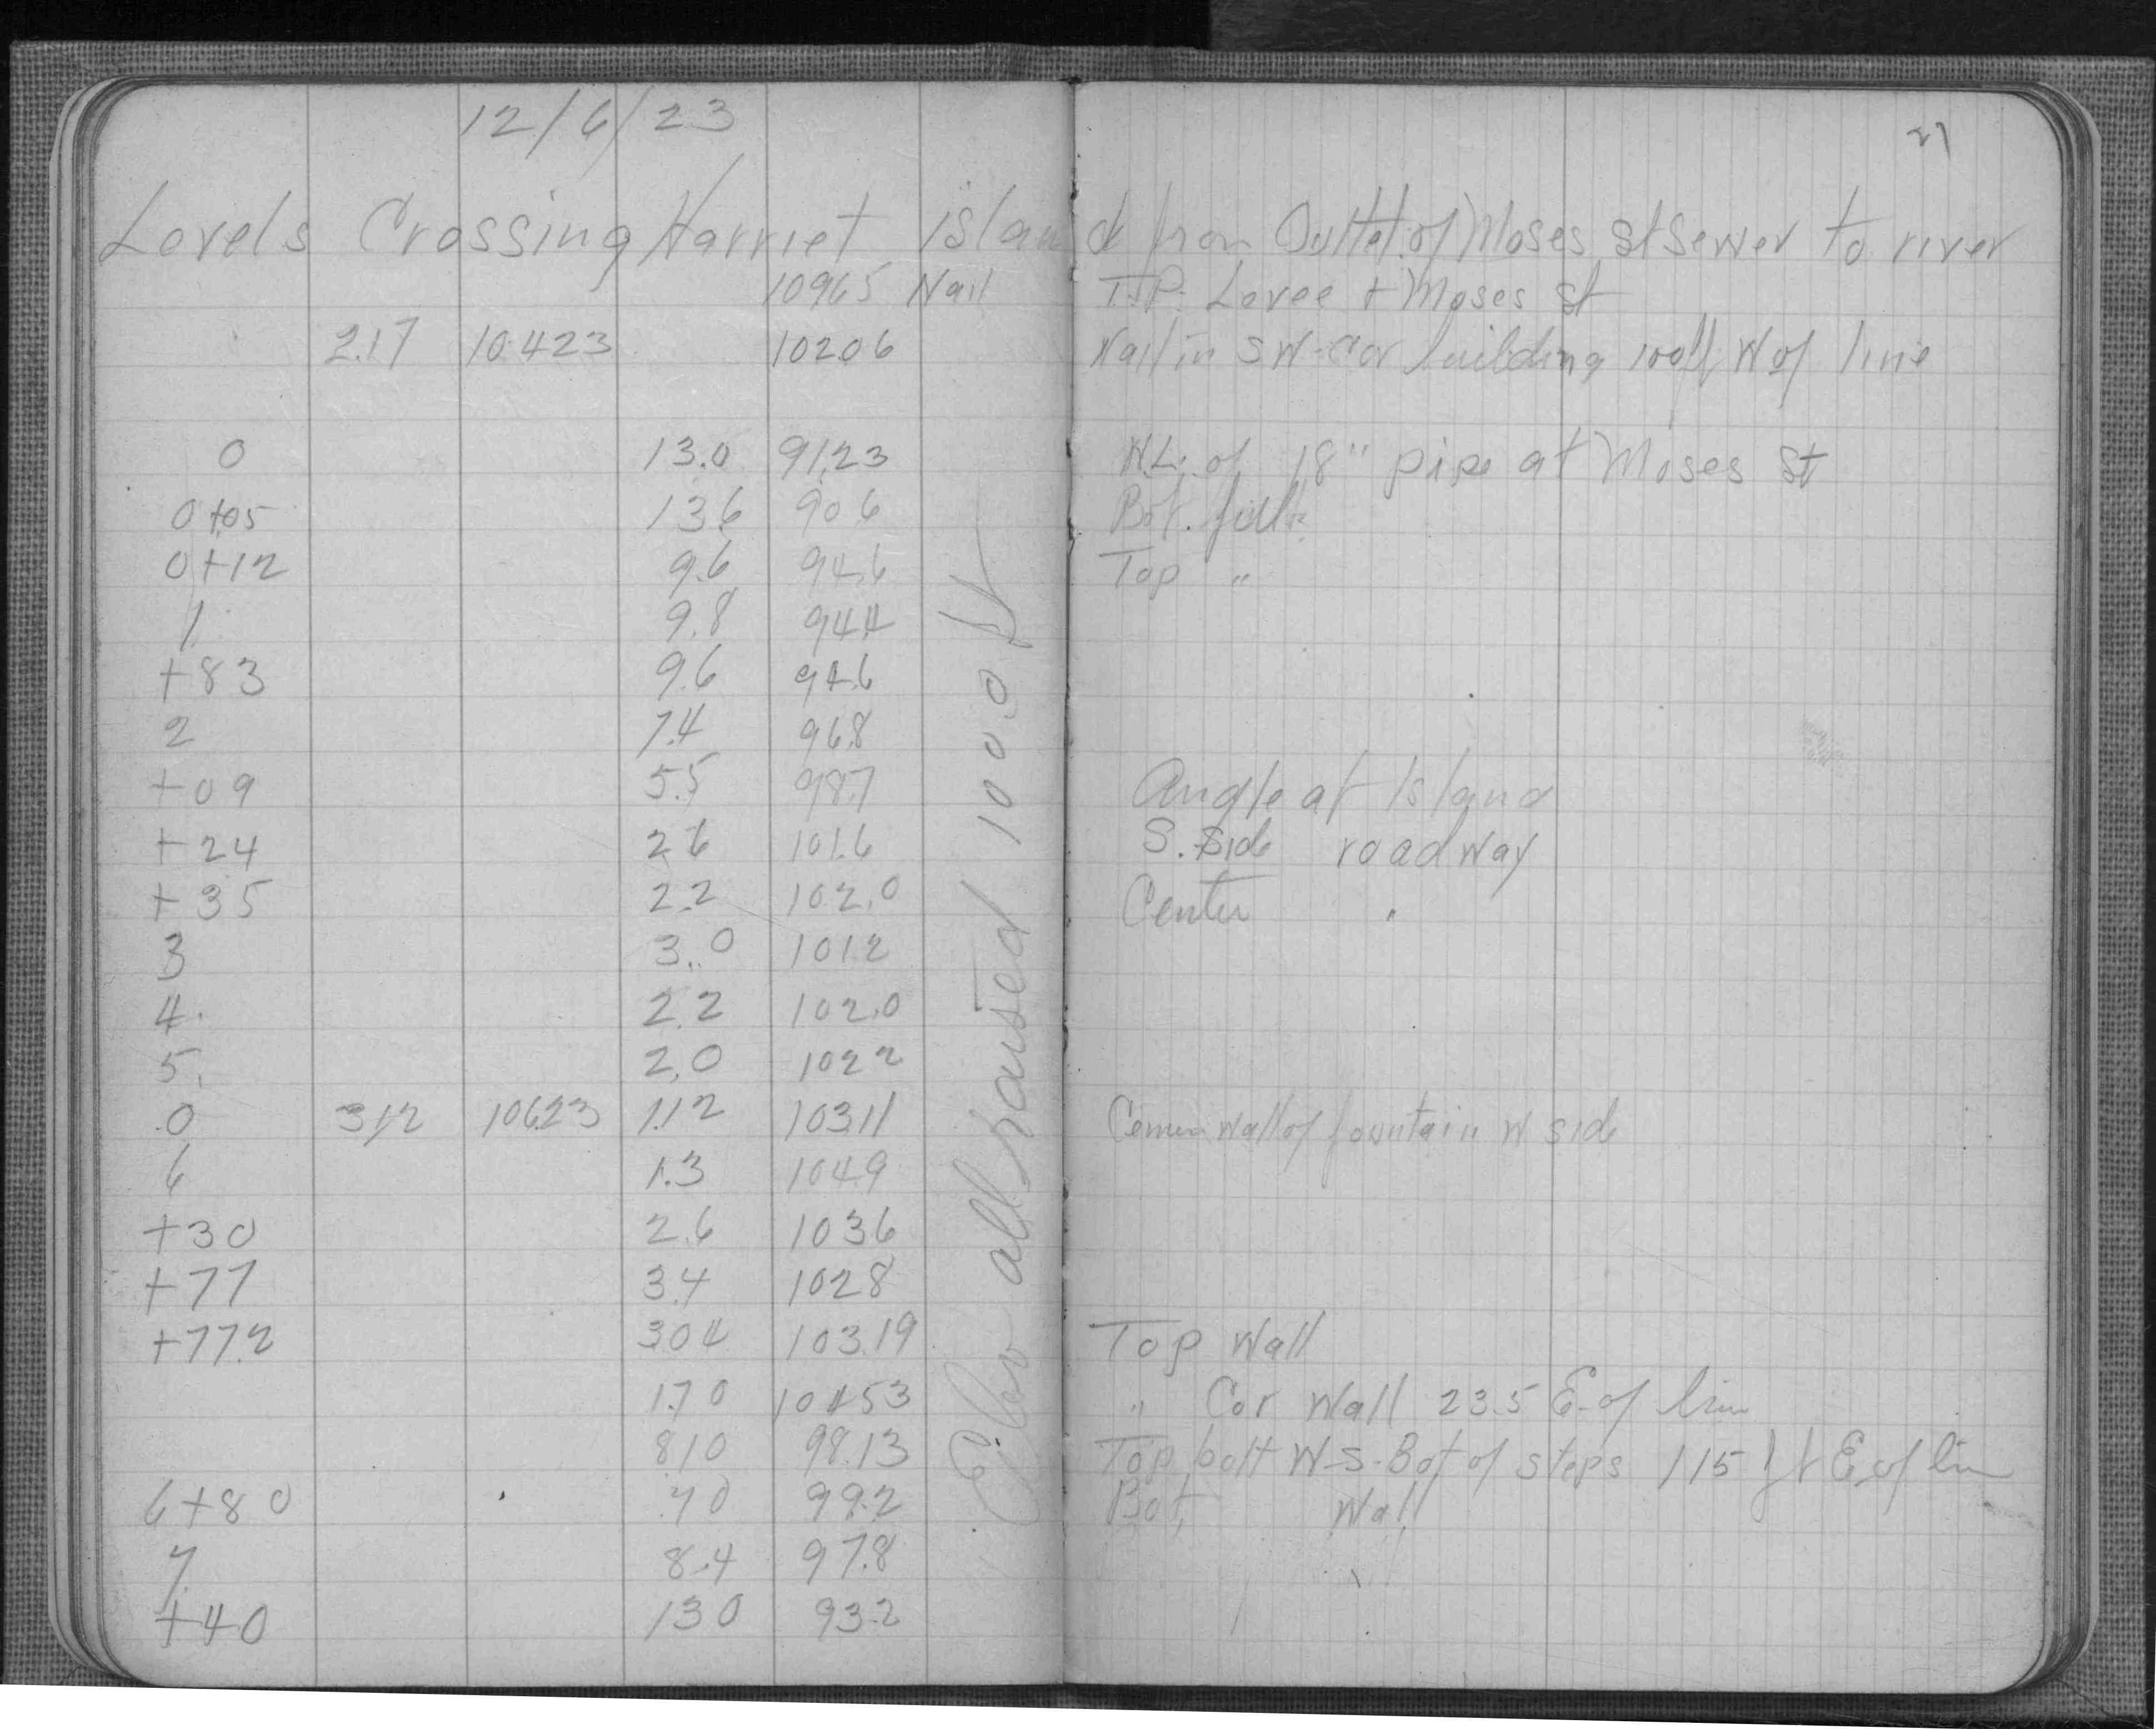 12/6/23
27
Levels Crossing Harriet island from Outlet of Moses St Sewer to river
10965 Nail T.P. Levee + Moses St
2.17 10423 10206 Nail in SW-Cor building 100ft W of line
0 13.0 91.23 W.L. of 18" pipe at Moses St
0+05 13.6 90.6 Bot. fill
0+12 9.6 94.6 Top "
1 9.8 94.4
+83 9.6 94.6
2 7.4 96.8
+09 5.5 98.7 Angle at Island
+24 2.6 101.6 S. Side roadway
+35 2.2 102.0 Center "
3 3.0 101.2
4. 2.2 102.0
5. 2.0 102.2
0 3.12 106.23 1.12 103.11 Cemen wall of fountain W side
6 1.3 104.9
+30 2.6 103.6
+77 3.4 102.8
+77.2 3.04 103.19 Top Wall
1.70 104.53 " Cor Wall 23.5 E. of line
8.10 98.13 Top bolt W-S-Bot of steps 115 ft E. of lin
6+80 7.0 99.2 Bot. Wall
7. 8.4 97.8
+40 13.0 93.2
Elev all raised 100.0 ft